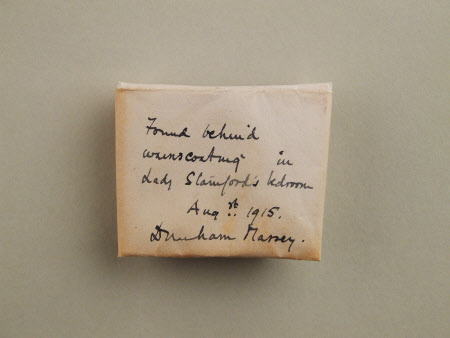 Found behind
wainscoating in
Lady Stamford's bedroom
Augst. 1915.
Dunham Massey.